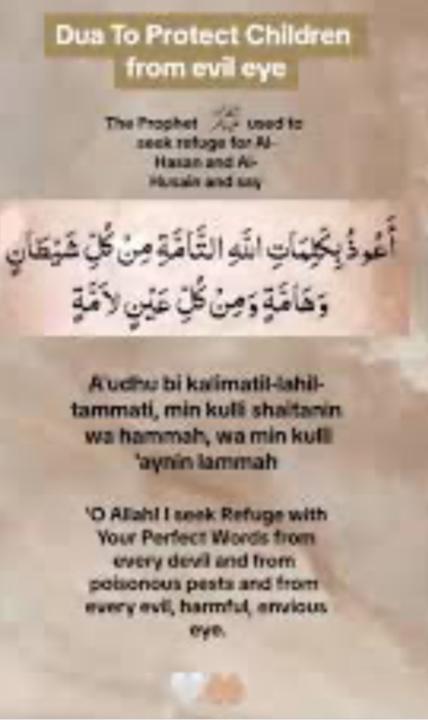 Dua To Protect Children
from evil eye
The Prophet ﷺ used to
seek refuge for Al-
Hasan and Al-
Husain and say
أَعُوذُ بِكَلِمَاتِ اللَّهِ التَّامَّةِ مِنْ كُلِّ شَيْطَانٍ
وَهَامَّةٍ وَمِنْ كُلِّ عَيْنٍ لاَمَّةٍ
A'udhu bi kalimatil-lahil-
tammati, min kulli shaitanin
wa hammah, wa min kulli
'aynin lammah
'O Allah! I seek Refuge with
Your Perfect Words from
every devil and from
poisonous pests and from
every evil, harmful, envious
eye.